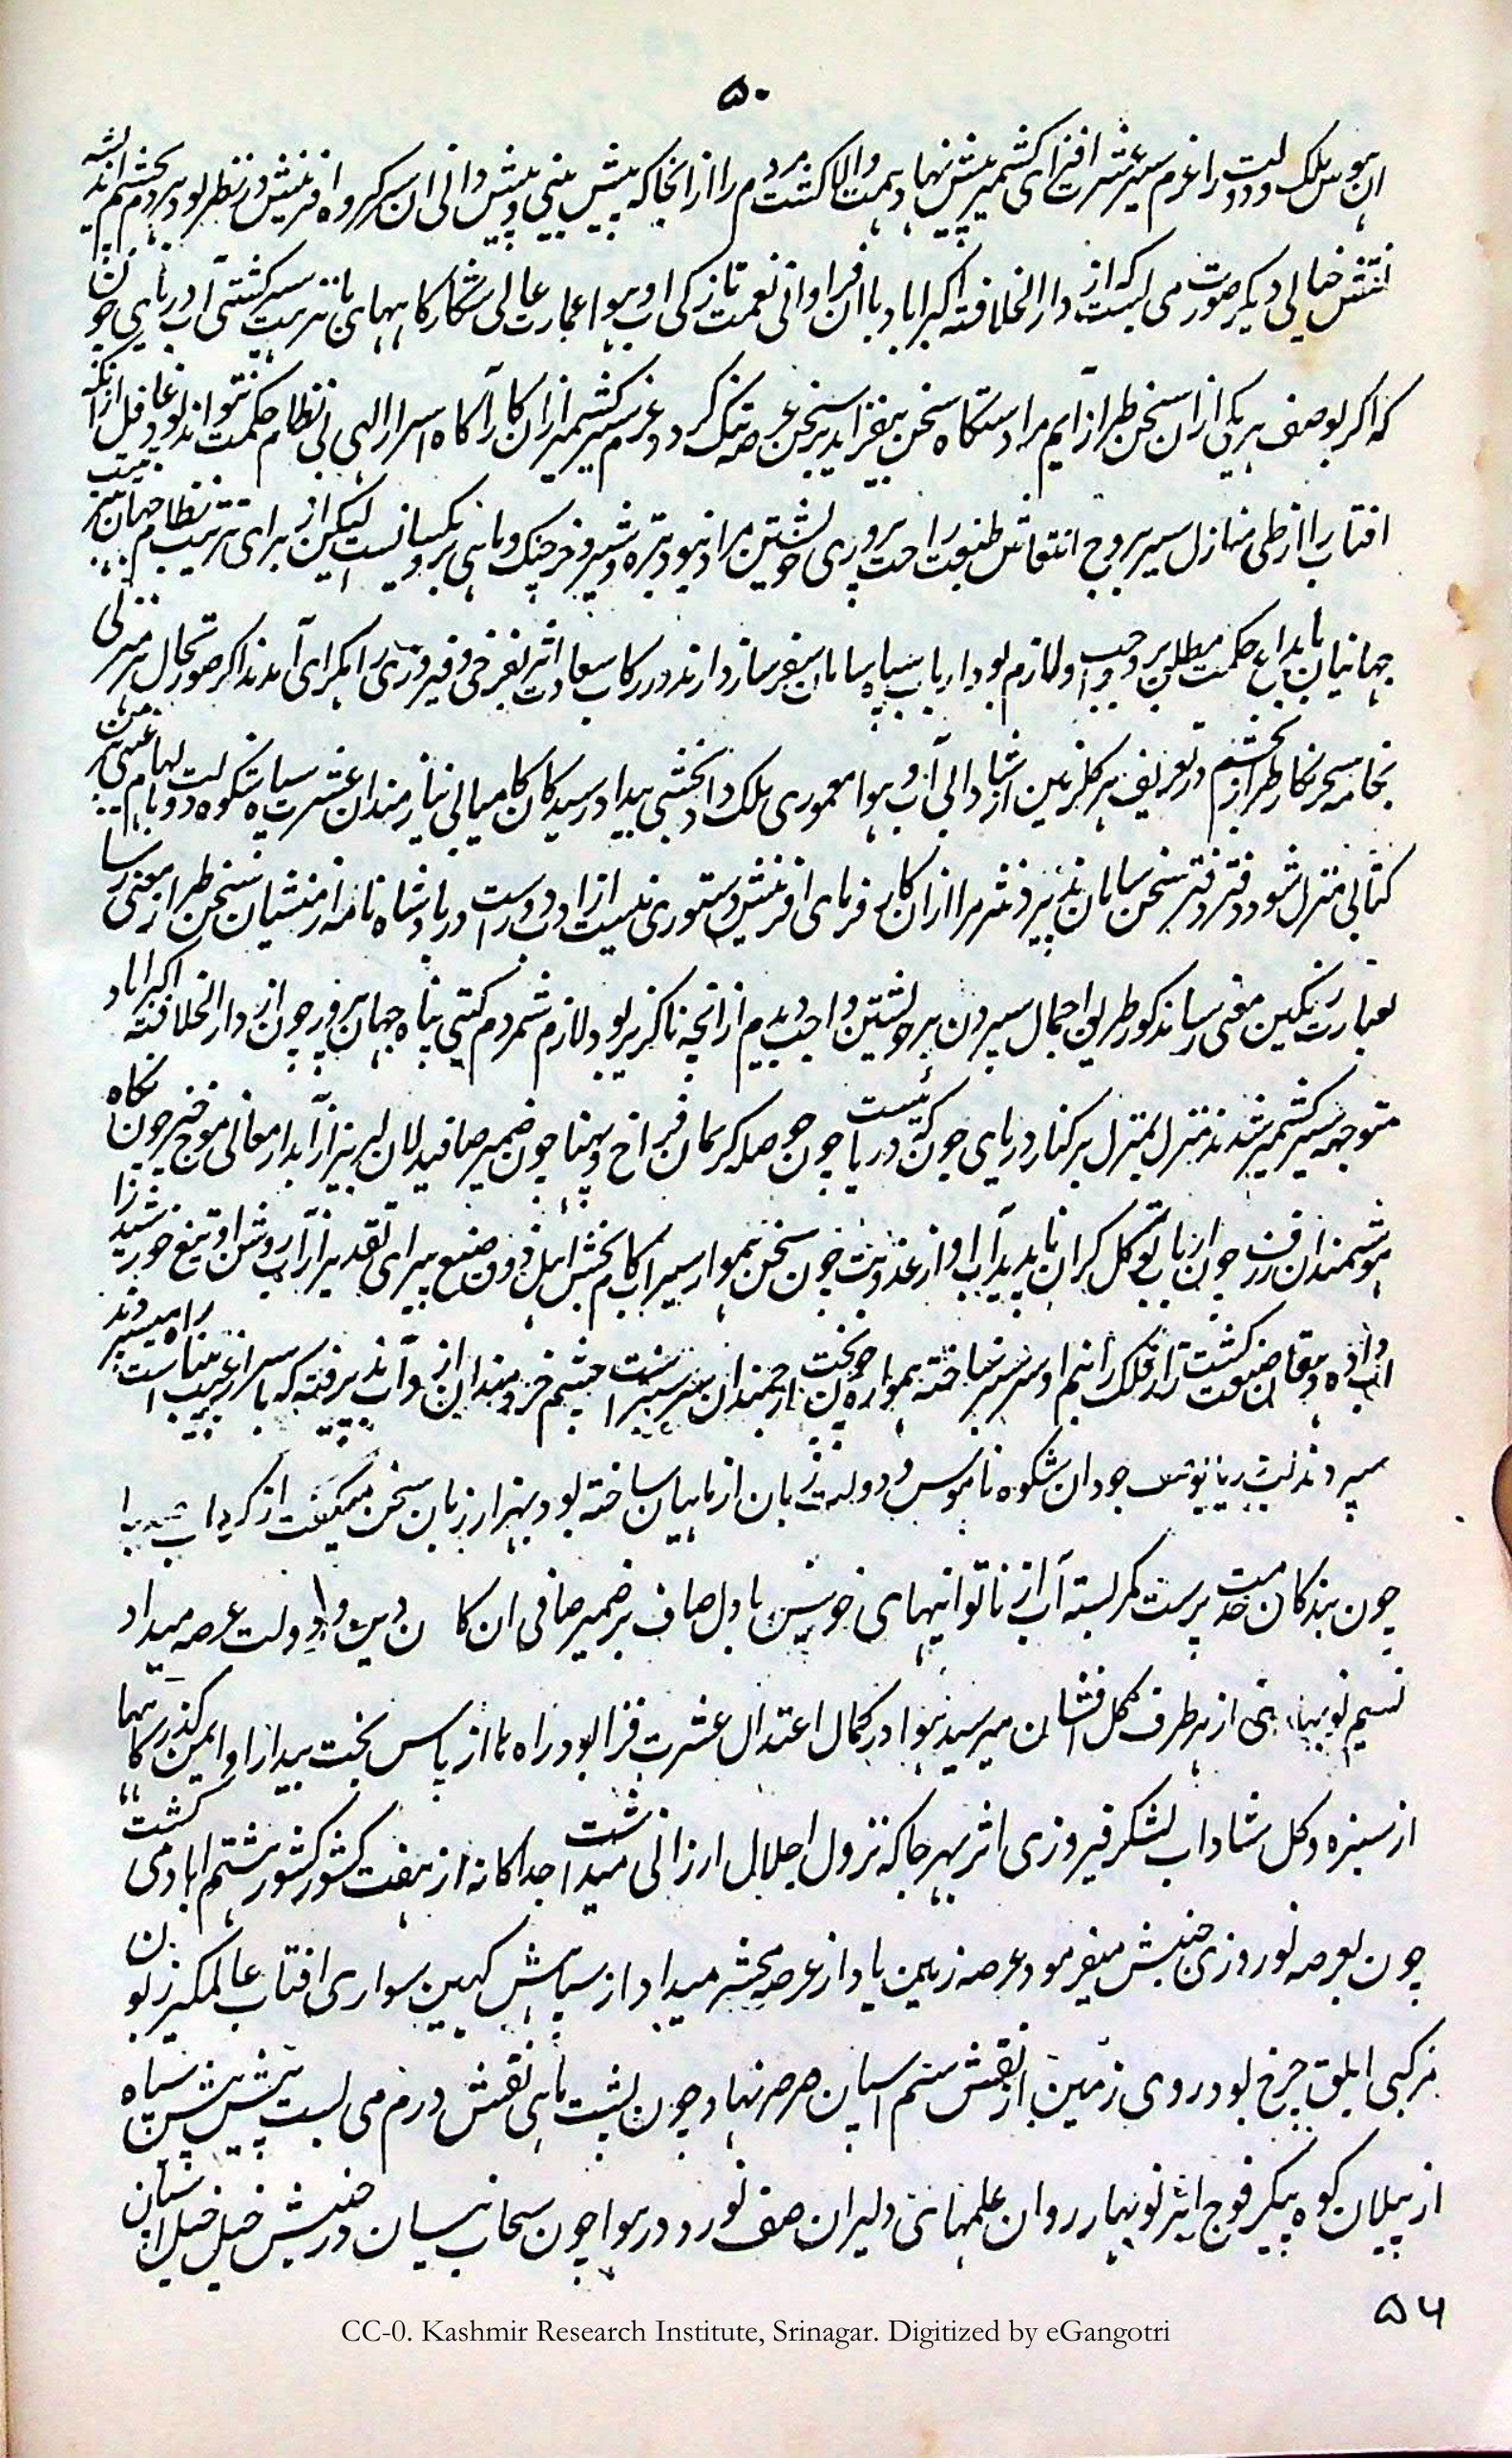 ۵۰
ان هوس ملک و دولت را عزم سیر عشرت افزای کشمیر پیش نهاد همت والا کشت مردم را از انجا که پیش بینی و پیش دانی ان سرکروه افرینش در نظر بود بردم بچشم اندیشه
نقش خیالی دیکر صورت می بست که از دار الخلافته اکبراباد با ان فراوانی نعمت تازکی اب و هوا عمارت عالی شکارکاههای با نزهت سیر کشتی آب دریای جون
که اکر بوصف هر یکی از ان سخن طراز آیم مرا دستکاه سخن بیفزاید بر سخن عرصه تنک کردد عزم سیر کشمیر از ان کار آکاه اسرار الهی بی نظام حکمت نتواند بود غافل از انکه
افتاب را از طی منازل سیر بروج انتعاش طبیعت راحت پروری خویشتن مراد نبود بره و شیر و خرچنک و ماهی برو یکسانست لیکن از برای ترتیب نظام جهان
جهانیان بابداع حکمت مطلق بر و واجب و لازم بود ارباب سپاه سامان سفر ساز دارند در رکاب سعادت اثر بفرخی و فیروزی رامکرای آمدند اکر صورتحال هر منزلی
بخامه سحرنکار طرازم در تعریف هر کلزمین از شادابی آب و هوا معموری ملک داد بخشی بیداد رسیدکان کامیابی نیازمندان عشرت سپاه شکوه دولت
کتابی منزل شود دفتر دفتر سخن سامان پذیر و نشر مرا از ان کار فرمای افرینش دستوری نیست از ادب دور است در پادشاه نامه از منشیان سخن طراز معنی رسا
بعبارت رنکین معنی رسا مذکور طریق اجمال سپردن بر خویشتن واجب دیدم از انچه ناکزیر بود لازم شمردم کیتی پناه جهان پرور چون از دار الخلافته اکبراباد
متوجه سیر کشمیر شدند منزل بمنزل بر کنار دریای جون که دریائیست چون حوصله کریمان فراخ و پهنا چون ضمیر صافیدلان لبریز از آبدار معانی موج خیز چون نکاه
هوشمندان ژرف جوان ارباب توکل کران ناپدید آب او از عذوبت چون سخن هموار سیراب کام بخش اهل ذوق صنع پیرای تقدیر از آب روشن او تیغ خورشید را
آب داده دهقان صنعت کشت زار فلک را از نم او سرسبز ساخته همواره چون بخت ارجمندان سرسبز است چشم خردمندان از و آب پذیرفته که با سر از غیب بیناست راه میسپردند
سپردند جودان شکوه ناموس و دولت زبان از ماهیان ساخته بود بهزار زبان سخن میکفت از کرداب
چون بندکان خدمت پرست کمر بسته آب از ناتوانیهای خویش با دل صاف بر ضمیر صافی ان کا ن دین و دولت عرصه میداد
نسیم نوبهار از هر طرف کل افشان میرسید هوا در کمال اعتدال عشرت فزا بود راهها از پاس بخت بیدار او ایمن کذرکاهها
از سبزه و کل شاداب لشکر فیروزی اثر بهر جا که نزول اجلال ارزانی میداشت جداکانه از هفت کشور کشور هشتم اباد می کشت
چون بعرصه نوردی جنبش میفرمود عرصه زمین یاد از عرصه محشر میداد از سپاهش کهین سواری افتاب عالمکیر بود
مرکبی ابلق چرخ بود روی زمین از نقش سم اسپان صرصر نهاد چون پشت ماهی نقش درم می بست پیش پیش سپاه
از پیلان کوه پیکر فوج ابر نوبهار روان علمهای دلیران صف نورد در هوا چون سحاب نیسان در جنبش خیل خیل
۵۴
CC-0. Kashmir Research Institute, Srinagar. Digitized by eGangotri